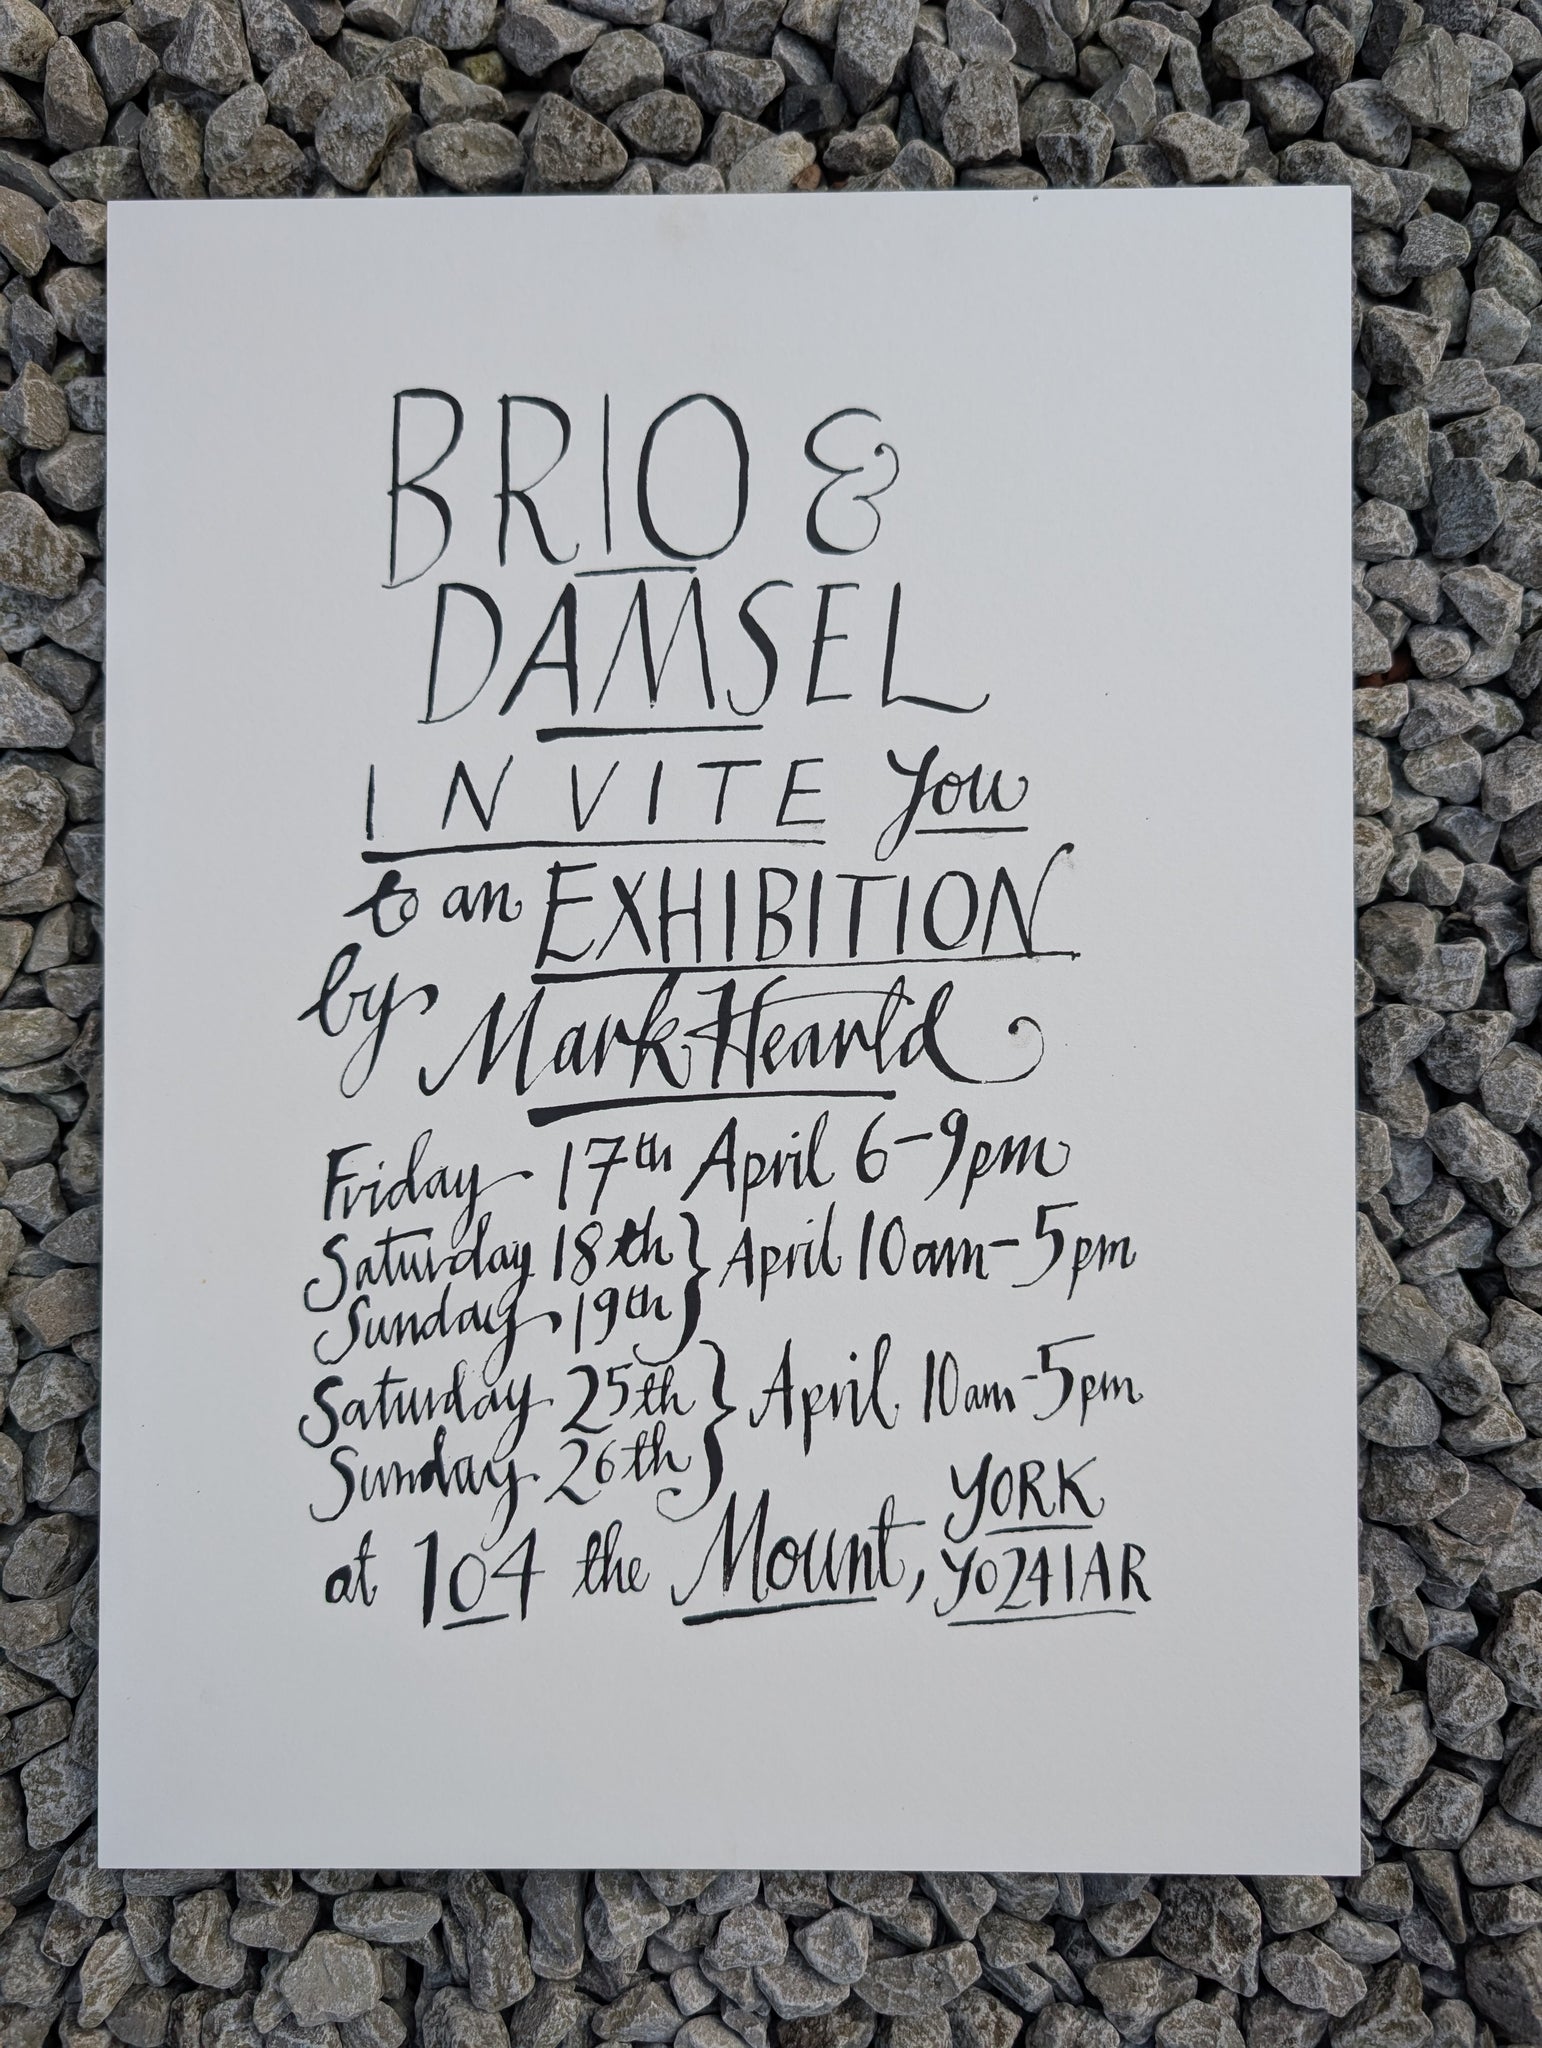 BRIO &
DAMSEL
INVITE you
to an EXHIBITION
by Mark Hearld
Friday 17th April 6-9pm
Saturday 18th } April 10am-5pm
Sunday 19th
Saturday 25th } April 10am-5pm
Sunday 26th
at 104 the Mount, YORK
YO24 1AR